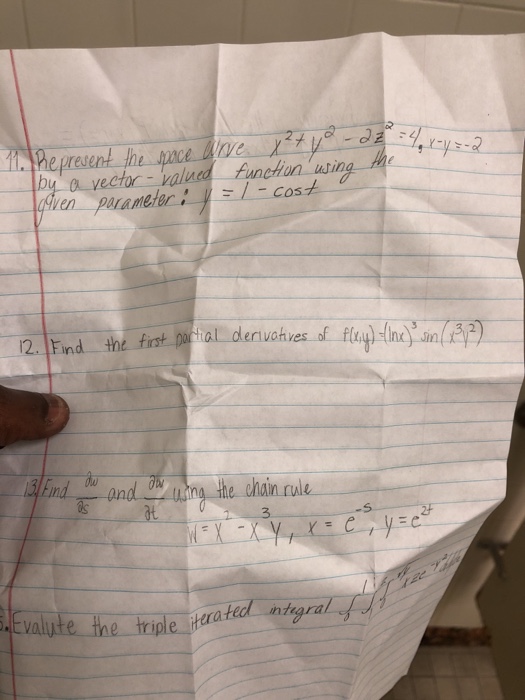 11. Represent the space curve x²+y²-2z²=4, x-y=-2
by a vector-valued function using the
given parameter: y = 1 - cost
12. Find the first partial derivatives of f(x,y)=(lnx)³ sin(x³y²)
13. Find ∂w/∂s and ∂w/∂t using the chain rule
w = x² - x³y, x = e^-s, y = e^2t
Evalute the triple iterated integral